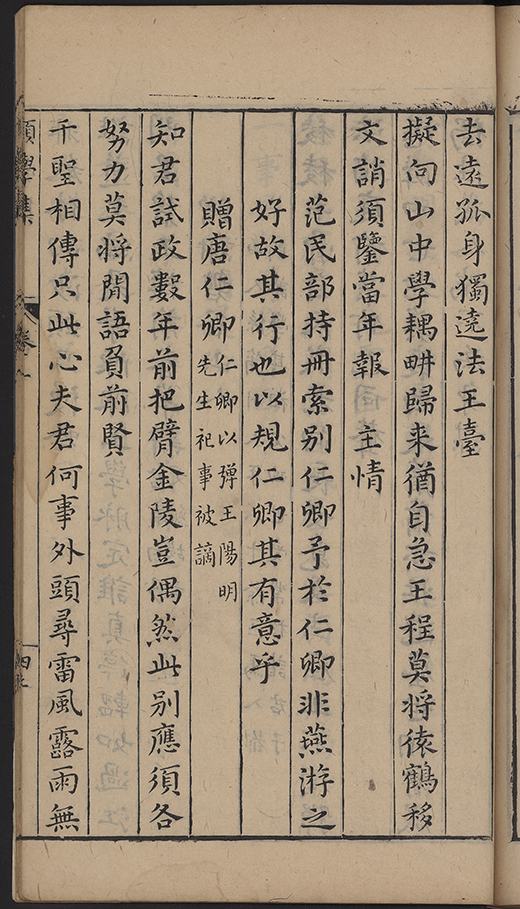 去遠孤身獨遶法王臺
擬向山中學耦畊歸来猶自急王程莫将猿鶴移
文誚須鑒當年報主情
范民部持冊索别仁卿予於仁卿非燕游之
好故其行也以規仁卿其有意乎
贈唐仁卿仁卿以弹王陽明
先生祀事被謫
知君試政數年前把臂金陵豈偶然此别應須各
努力莫将閒語負前賢
千聖相傳只此心夫君何事外頭尋雷風露雨無
願學集
卷八